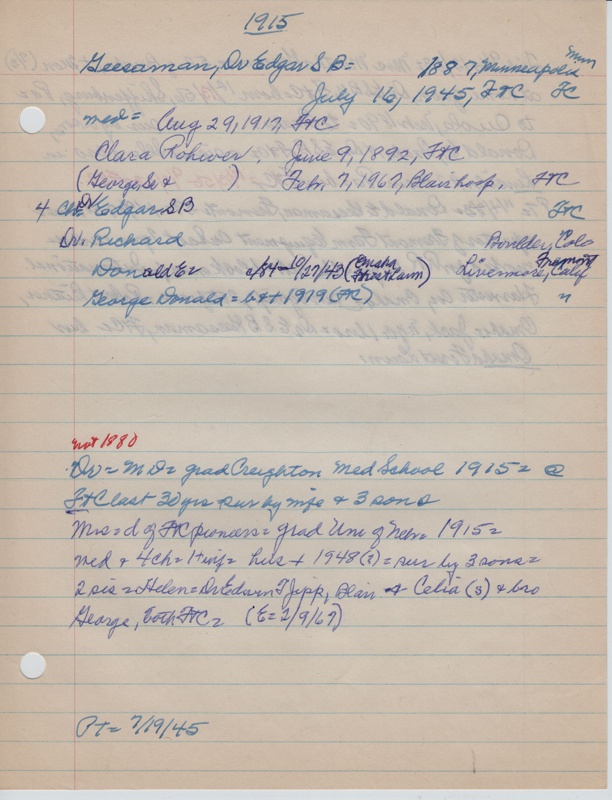 1915
Geesaman, Dr Edgar S B = 1887, Minneapolis Minn
July 16, 1945, FtC FC
med = Aug 29, 1917, FtC
Clara Rohwer, June 9, 1892, FtC
(George, Sr & ) Feb. 7, 1967, Blair hosp, FtC
4 Ch = Dr Edgar S B FtC
Dr. Richard Boulder, Colo
Donald E = a/84 - 10/27/43 (Omaha First Lawn) Livermore, Fremont Calif
George Donald = b & + 1919 (FtC) "
not 1880
Dr = M D = grad Creighton Med School 1915 = @
FtC last 30 yrs sur by wife & 3 sons
Mrs = d of FtC pioneers = grad Uni of Neb = 1915 =
med & 4 ch = 1 + inf = hus + 1948 (?) = sur by 3 sons =
2 sis = Helen = Dr Edwin T Jipp, Blair & Celia (s) & bro
George, both FtC = (E = 2/9/67)
PT = 7/19/45